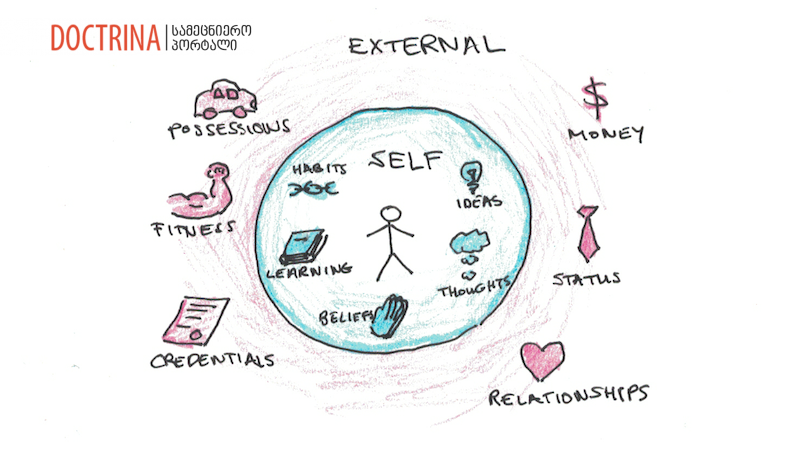 DOCTRINA
სამეცნიერო
პორტალი
EXTERNAL
POSSESSIONS
MONEY
SELF
HABITS
IDEAS
FITNESS
LEARNING
THOUGHTS
STATUS
BELIEFS
CREDENTIALS
RELATIONSHIPS
$